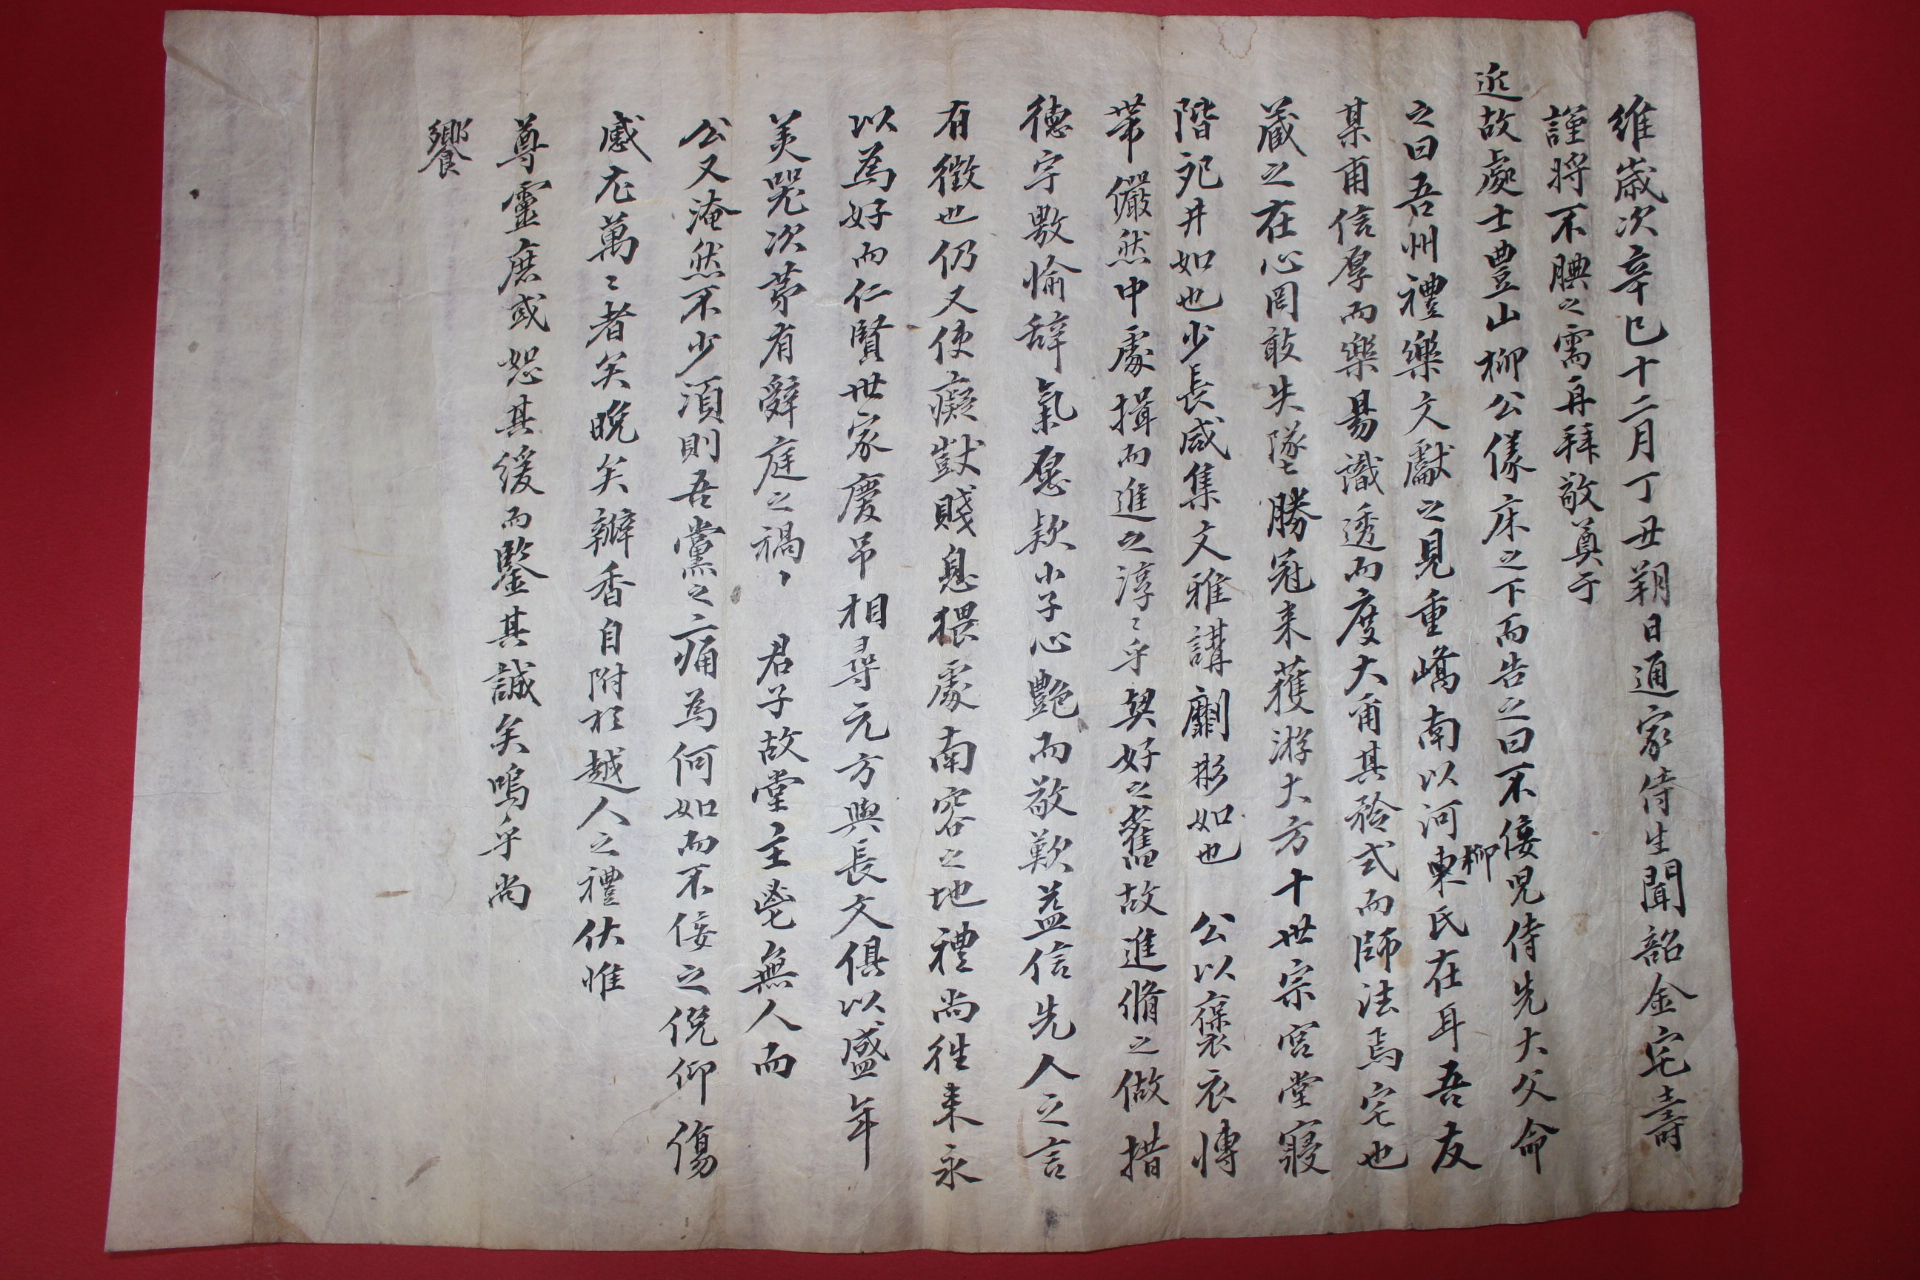 維歲次辛巳十二月丁丑朔日通家侍生聞韶金宅壽
謹將不腆之需再拜敬奠于
近故處士豊山柳公㒹床之下而告之曰不佞児侍先大父命
之曰吾州禮樂文獻之見重嶠南以河東柳氏在耳吾友
某甫信厚而樂易識透而度大甭其矜式而師法焉宅也
藏之在心罔敢失墜勝冠来獲游大方十世宗宮堂寢
階戺井如也少長咸集文雅講劘彬如也 公以褒衣博
帶儼然中處揖而進之淳〻乎契好之舊故進脩之做措
德宇敷愉辞氣愿款小子心艶而敬歎盖信先人之言
有徵也仍又使癡獃賤息猥處南容之地禮尚徃来永
以為好而仁賢世家慶吊相尋元方與長文俱以盛年
美兕次苐有辭庭之禍、 君子故堂主鬯無人而
公又淹然不少湏則吾黨之痛為何如而不佞之俛仰傷
感尤萬〻者矣晩矣瓣香自附於越人之禮伏惟
尊靈庶或恕其緩而鑒其誠矣嗚乎尚
饗